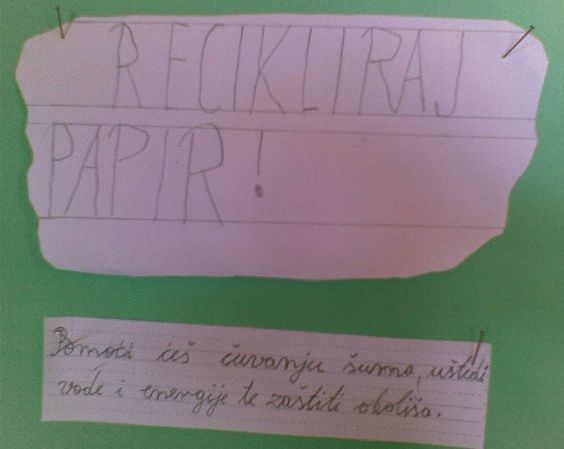 RECIKLIRAJ
PAPIR!
Pomoći ćeš čuvanju šuma, uštedi
vode i energije te zaštiti okoliša.